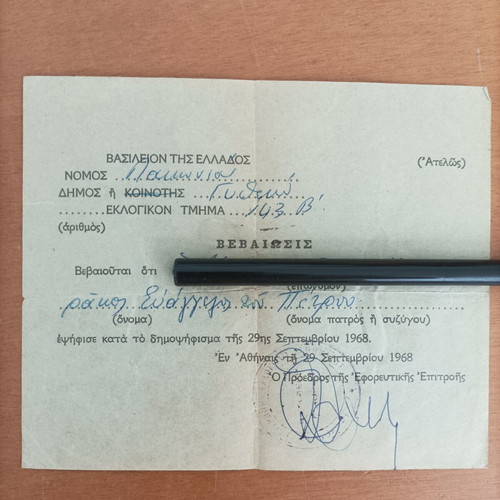 ΒΑΣΙΛΕΙΟΝ ΤΗΣ ΕΛΛΑΔΟΣ (Ἀτελῶς)
ΝΟΜΟΣ Λακωνίας
ΔΗΜΟΣ ἢ ΚΟΙΝΟΤΗΣ Γυθείου
ΕΚΛΟΓΙΚΟΝ ΤΜΗΜΑ 143 Β'
(ἀριθμὸς)
ΒΕΒΑΙΩΣΙΣ
Βεβαιοῦται ὅτι
(ἐπώνυμον)
ράκος Εὐάγγελος τοῦ Πέτρου
(ὄνομα) (ὄνομα πατρὸς ἢ συζύγου)
ἐψήφισε κατὰ τὸ δημοψήφισμα τῆς 29ης Σεπτεμβρίου 1968.
Ἐν Ἀθήναις τῇ 29 Σεπτεμβρίου 1968
Ὁ Πρόεδρος τῆς Ἐφορευτικῆς Ἐπιτροπῆς